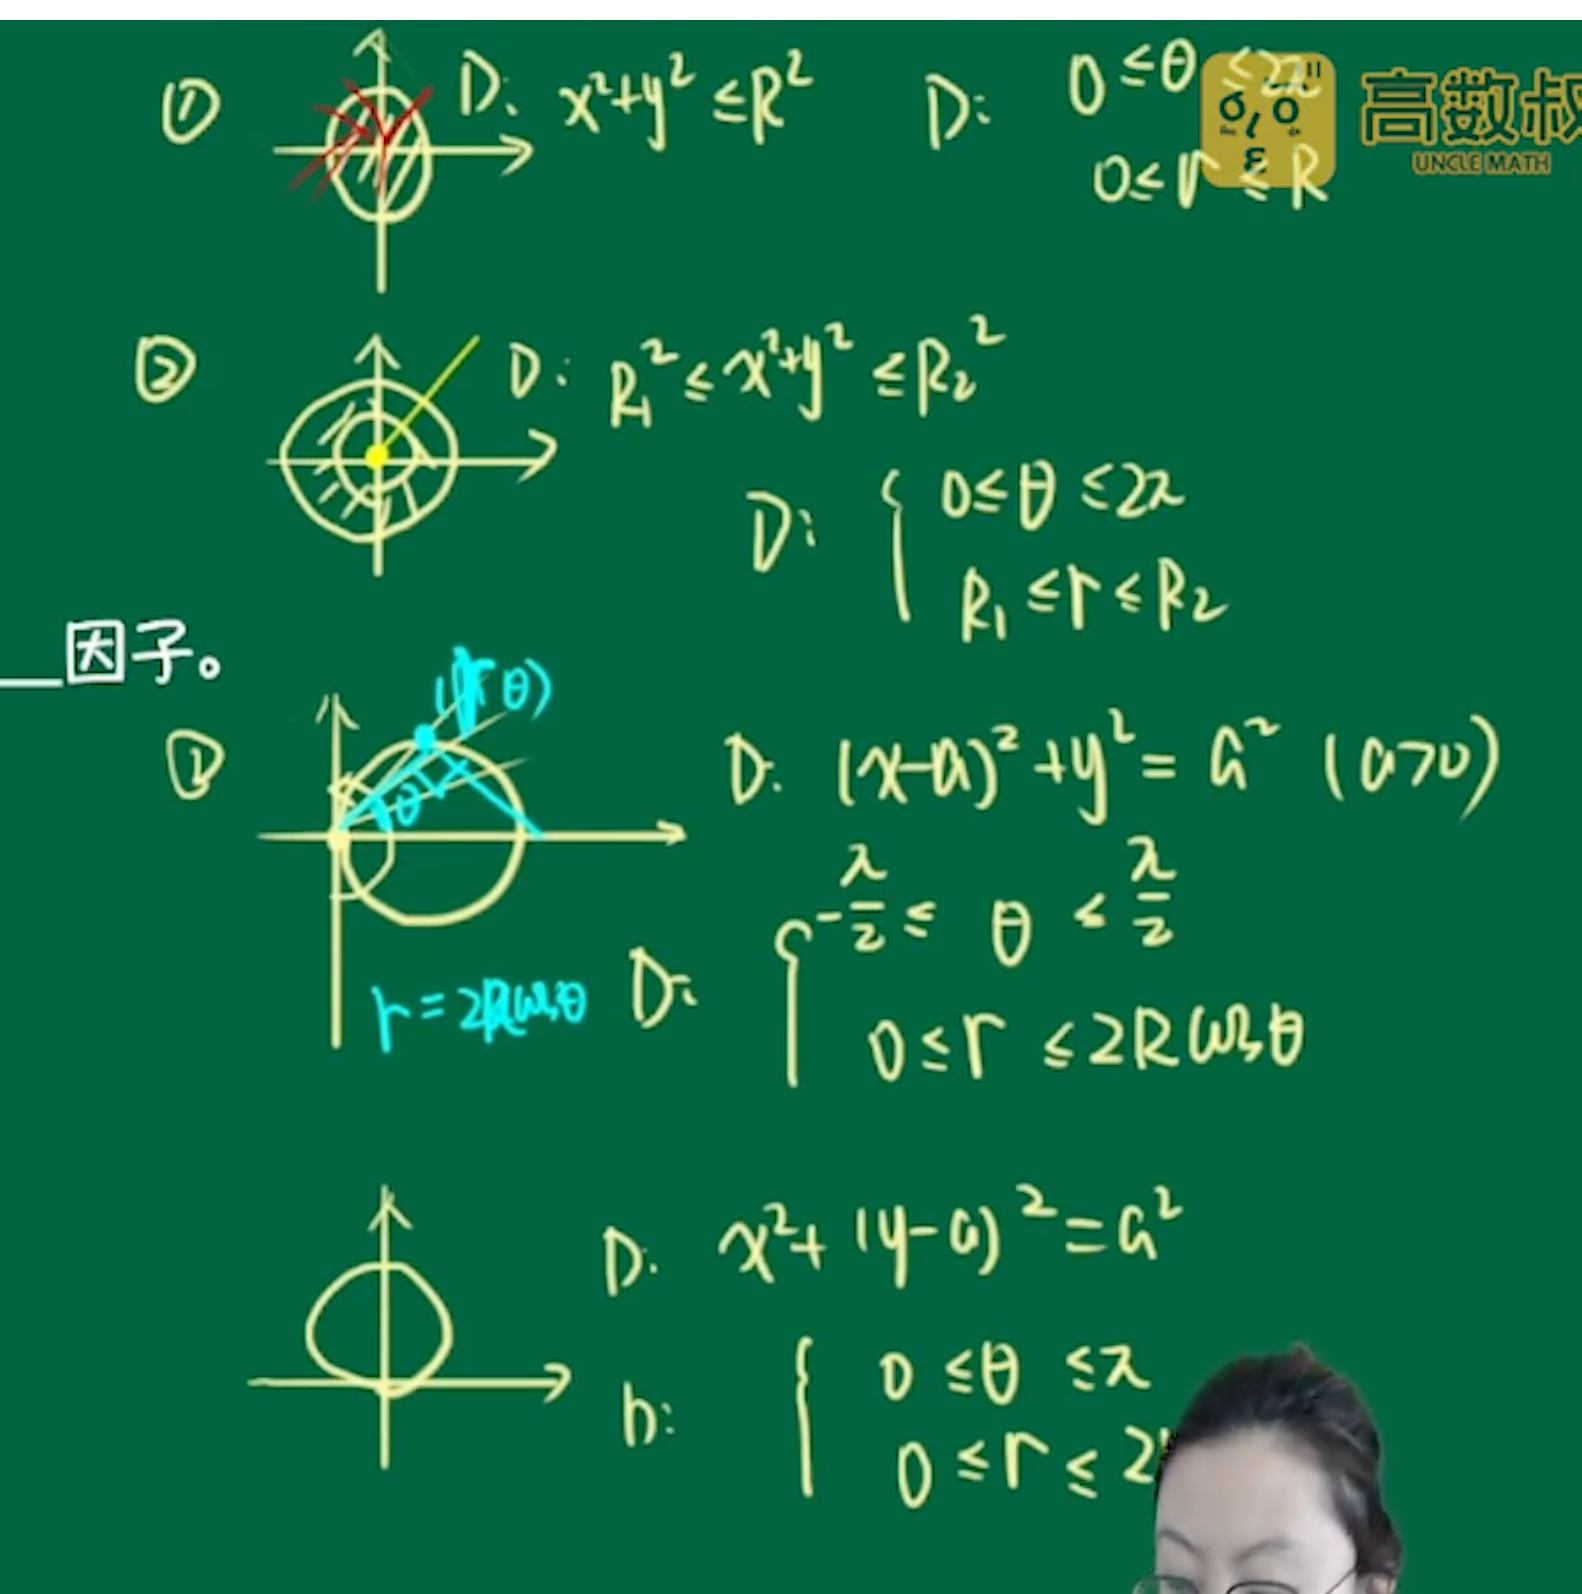 ① D: x²+y² ≤R² D: 0≤θ≤2π
0≤r≤R
高数叔
UNCLE MATH
② D: R₁²≤x²+y²≤R₂²
D: { 0≤θ≤2π
R₁≤r≤R₂
因子。
(r θ)
θ
③ D: (x-a)²+y²= a² (a>0)
D: { -π/2 ≤ θ ≤ π/2
r=2Rcosθ
0≤r≤2Rcosθ
D: x²+(y-a)²=a²
D: { 0≤θ≤π
0≤r≤2